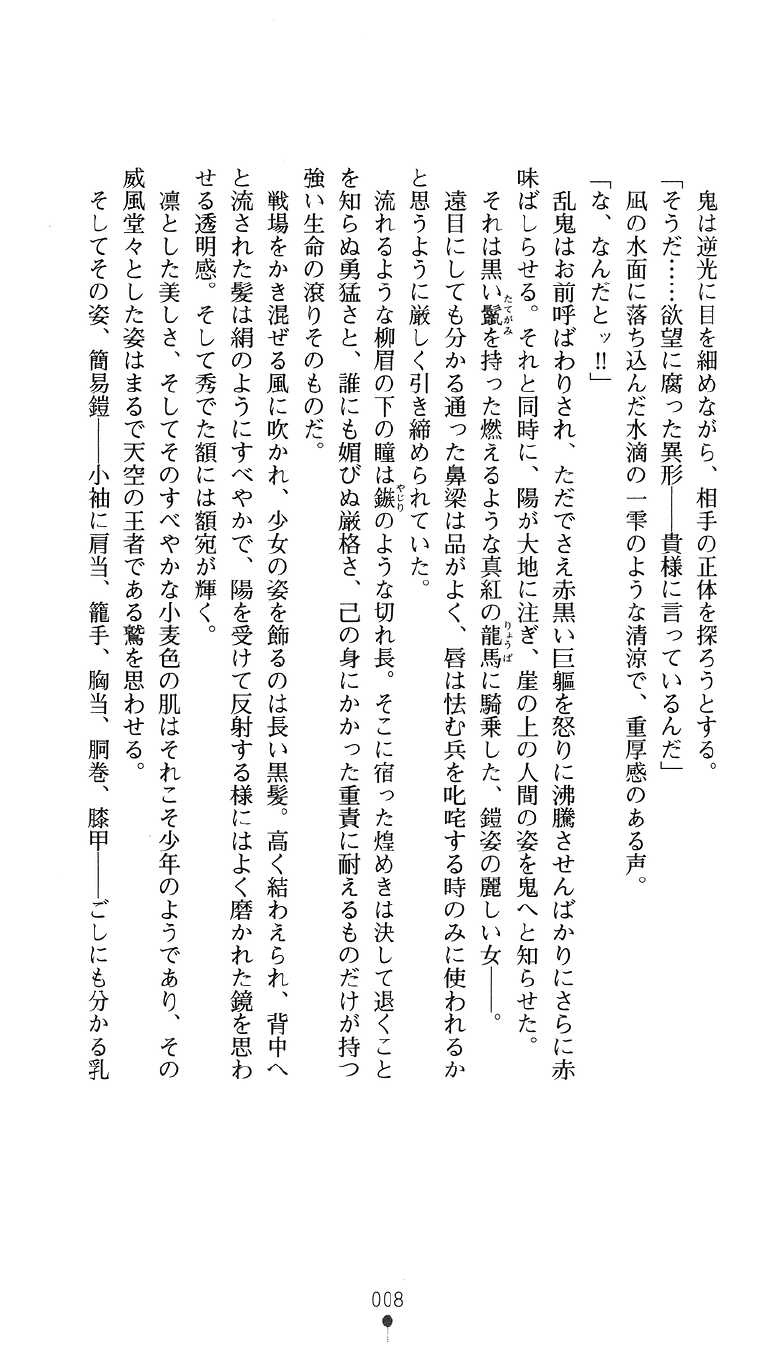 鬼は逆光に目を細めながら、相手の正体を探ろうとする。
「そうだ……欲望に腐った異形――貴様に言っているんだ」
凪の水面に落ち込んだ水滴の一雫のような清涼で、重厚感のある声。
「な、なんだとッ!!」
乱鬼はお前呼ばわりされ、ただでさえ赤黒い巨軀を怒りに沸騰させんばかりにさらに赤
味ばしらせる。それと同時に、陽が大地に注ぎ、崖の上の人間の姿を鬼へと知らせた。
それは黒い鬣を持った燃えるような真紅の龍馬に騎乗した、鎧姿の麗しい女――。
遠目にしても分かる通った鼻梁は品がよく、唇は怯む兵を叱咤する時のみに使われるか
と思うように厳しく引き締められていた。
流れるような柳眉の下の瞳は鏃のような切れ長。そこに宿った煌めきは決して退くこと
を知らぬ勇猛さと、誰にも媚びぬ厳格さ、己の身にかかった重責に耐えるものだけが持つ
強い生命の滾りそのものだ。
戦場をかき混ぜる風に吹かれ、少女の姿を飾るのは長い黒髪。高く結わえられ、背中へ
と流された髪は絹のようにすべやかで、陽を受けて反射する様にはよく磨かれた鏡を思わ
せる透明感。そして秀でた額には額宛が輝く。
凛とした美しさ、そしてそのすべやかな小麦色の肌はそれこそ少年のようであり、その
威風堂々とした姿はまるで天空の王者である鷲を思わせる。
そしてその姿、簡易鎧――小袖に肩当、籠手、胸当、胴巻、膝甲――ごしにも分かる乳
たてがみ
りょうば
やじり
008